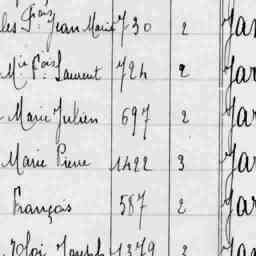 les Fçois Jean Marie 730 2 Jar
Mie Fçois Laurent 724 2 Jar
Marie Julien 697 2 Jar
Marie Pierre 1422 3 Jar
François 587 2 Jar
Eloi Joseph 1379 2 Jar